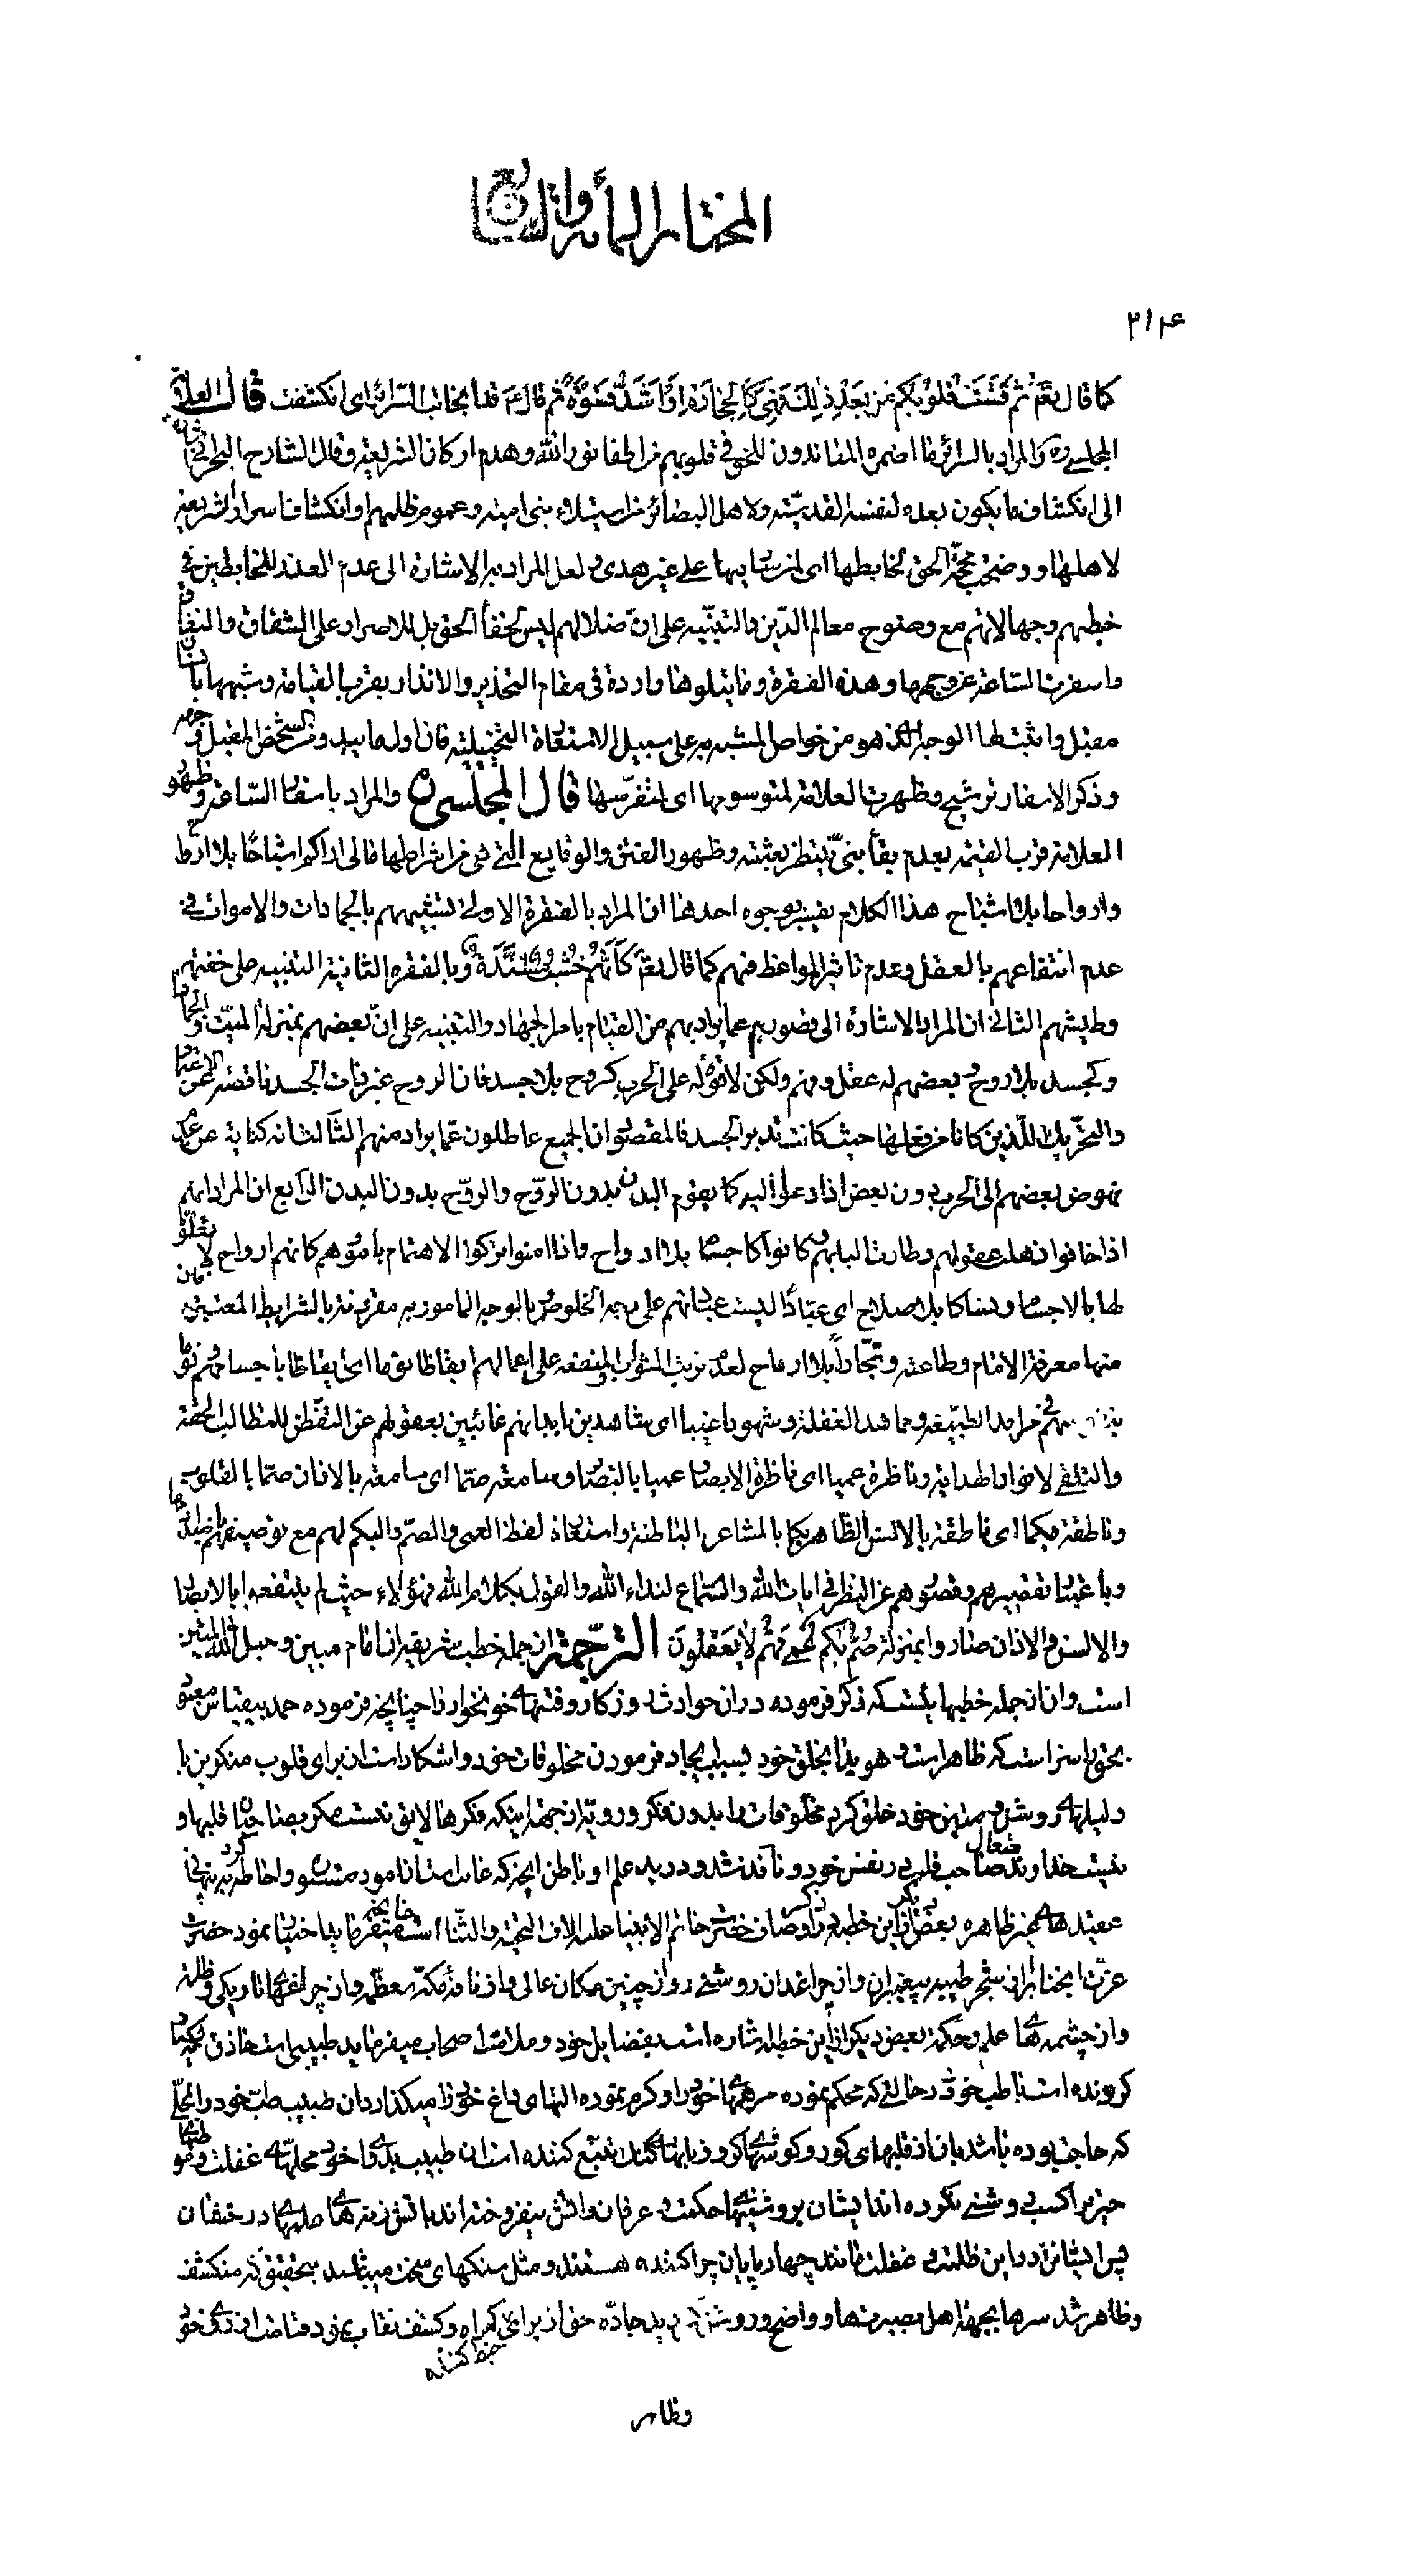 المختار المأة والسابع
۲۱۴
كما قال تعم ثم قست قلوبكم من بعد ذلك فهي كالحجارة او اشد قسوة ثم قال ع قد انجابت السرائر اى انكشفت قال العلامة
المجلسي ره والمراد بالسرائر ما اضمره المعاندون للحق في قلوبهم من اطفاء نور الله وهدم اركان الشريعة وقال الشارح البحراني اشارة
الى انكشاف ما يكون بعده لنفسه القدسيّة ولاهل البصائر من استيلاء بني امية وعموم ظلمهم او انكشاف اسرار الشريعة
لاهلها ووضحت محجّة الحق لخابطها اى لمن سار فيها على غير هدى ولعل المراد به الاشارة الى عدم العذر للخابطين في
خبطهم وجهالاتهم مع وضوح معالم الدّين والتنبيه على انّ ضلالهم ليس لخفأ الحق بل للاصرار على الشقاق والنفاق
واسفرت الساعة عن وجهها وهذه الفقرة وما يتلوها واردة في مقام التحذير والانذار بقرب القيامة وشبهها بانسان
مقبل واثبت لها الوجه الذى هو من خواص المشبه به على سبيل الاستعارة التخييلية فان اول ما يبدو من الشخص المقبل وجهه
وذكر الاسفار ترشيح وظهرت العلامة لمتوسمها اى لمتفرّسها قال المجلسي ره والمراد باسفار السّاعة وظهور
العلامة قرب القيمة بعدم بقأ نبيّ ينتظر بعثته وظهور الفتن والوقايع التي هي من اشراطها مالى اراكم اشباحًا بلا ارواح
وارواحا بلا اشباح هذا الكلام يفسر بوجوه احدها ان المراد بالفقرة الاولى تشبيههم بالجمادات والاموات في
عدم انتفاعهم بالعقل وعدم تاثير المواعظ فيهم كما قال تعم كَأَنَّهُمْ خُشُبٌ مُسَنَّدَةٌ وبالفقرة الثانية التنبيه على خفتهم
وطيشهم الثاني ان المراد الاشارة الى قصورهم عما يراد بهم من القيام بامر الجهاد والتنبيه على انّ بعضهم بمنزلة الميّت والجماد
وكجسد بلا روح وبعضهم له عقل وفهم ولكن لا قوة له على الحرب كروح بلا جسد فان الروح غير ذات الجسد ناقصة عن الاعتمال
والتحريك اللّذين كانا من فعلها حيث كانت تدبر الجسد فالمقصود ان الجميع عاطلون عمّا يراد منهم الثالث انه كناية عن عدم
نهوض بعضهم الى الحرب دون بعض اذا دعوا اليه كما لا يقوم البدن بدون الروح والروح بدون البدن الرابع ان المراد انهم
اذا خافوا ذهلت عقولهم وطارت البابهم وكانوا كاجسام بلا ارواح واذا امنوا تركوا الاهتمام بامورهم كانهم ارواح لا تعلّق
لها بالاجسام ونساكا بلا صلاح اى عبّادًا ليست عباداتهم على وجه الخلوص وبالوجه المامور به مقرونة بالشرايط المعتبرة التى من
منها معرفة الامام وطاعته وتجّاراً بلا ارباح لعدم ترتب الثواب والمنفعة على اعمالهم ايقاظا نوما اى ايقاظا باجسامهم نوما
بنفوسهم في مراقد الطبيعة ومماهد الغفلة وشهودا غيبا اى شاهدين بابدانهم غائبين بعقولهم عن التفطن للمطالب الحقة
والتلقي لانوار الهداية وناظرة عميا اى ناظرة الابصار عميا بالبصاير وسامعة صمّا اى سامعة بالاذان صمّا بالقلوب
وناطقة بكما اى ناطقة بالالسن الظاهر بكما بالمشاعر الباطنة واستعارة لفظ العمى والصّم والبكم لهم مع توصيفهم باضدادها
وباعتبار تقصيرهم وقصورهم عن النظر في ايات الله والسّماع لنداء الله والقول بكلام الله فهؤلاء حيث لم ينتفعوا بالابصار
والالسن والاذان صاروا بمنزلة صُمٌّ بُكْمٌ عُمْيٌ فَهُمْ لا يَعْقِلُونَ الترّجمة از جمله خطب شريفه ان امام مبين وحبل الله المتين
است وان از جمله خطبهائيست كه ذكر فرموده دران حوادث روزكار وفتنهاى خونخوار را چنانچه فرموده حمد بيقياس معبود
بحق را سزاست كه ظاهر است وهويدا بخلق خود بسبب ايجاد فرمودن مخلوقات خود واشكار است ان براى قلوب منكرين با
دليلهاى روشن ومتين خود خلق كرد مخلوقات را بدون فكر ورويّه از جهة اينكه فكرها لايق نيست مكر بصاحبان قلبها و
نيست خداوند متعال صاحب قلب در نفس خود ونافذ شد ودريد علم او باطن انچه كه غايب است از امور مستور واحاطه كرد به پنهانى
عقيدهاى غير ظاهره بعض ديگر از اين خطبه در ذكر اوصاف حضرت خاتم الانبيا عليه الاف التحية والثّنا است چنانچه ميفرمايد اختيار نمود حضرت
عزّت انجناب را از شجره طيبه پيغمبران واز چراغدان روشنى واز چنين مكان عالى واز ناف مكّه معظّمه واز چراغهاى تاريكى وظلمة
واز چشمهاى علم وحكمة بعض ديكر از اين خطبه اشاره است بفضايل خود وملامت اصحاب ميفرمايد طبيبى است حاذق كه بسيار
كرونده است باطب خود در حالتى كه محكم نموده مرهمهاى خود را وكرم نموده التهاى داغ خود را ميكذارد ان طبيب طب خود را بمحلّى
كه حاجت بوده باشد بان از قلبهاى كور وكوشهاى كر وزبانهاى كنك تتبّع كننده است ان طبيب بدواى خود محلهاى غفلت وموطنهاى
حيرت را كسب روشنى نكرده اند ايشان بروشنيهاى حكمت وعرفان واتش نيفروخته اند باتش زنهاى علمهاى درخشان
پس ايشان در اين ظلمت وغفلت مانند چهار پايان چرا كننده هستند ومثل سنكهاى سخت ميباشند بتحقيق كه منكشف
وظاهر شد سرها بجهة اهل بصيرتها وواضح وروشن كرديد جادّه حق از براى كمراه خبط كننده وكشف نقاب نمود قيامت از روى خود
وظاهر